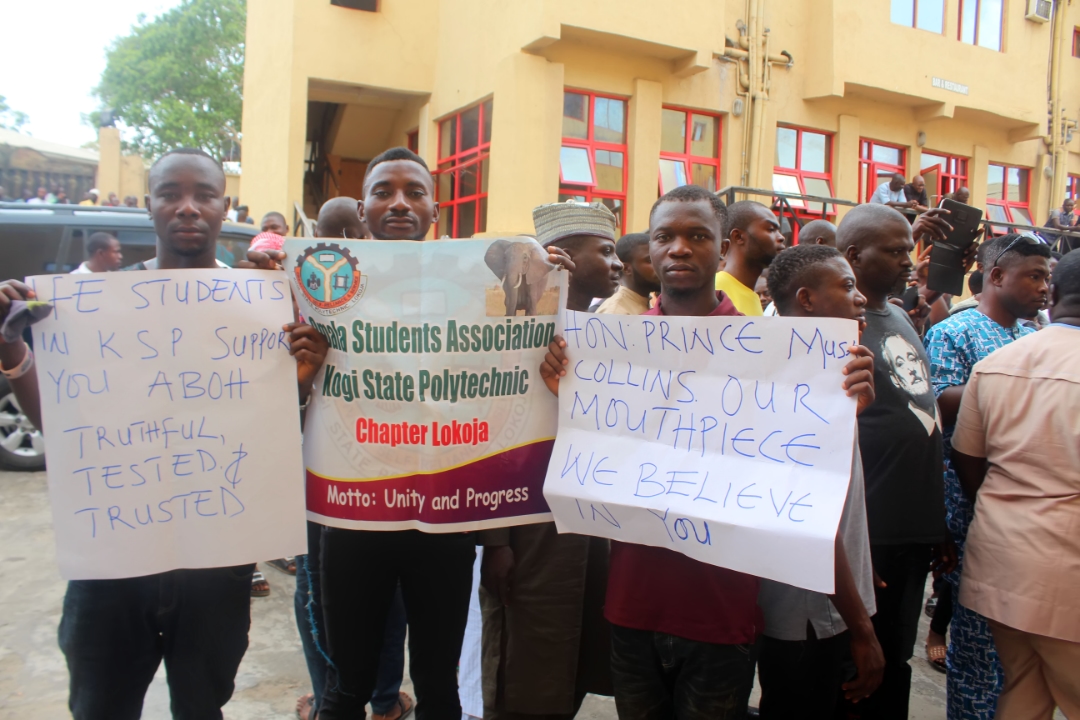 IFE STUDENTS
IN KSP SUPPOR
YOU ABOH
TRUTHFUL,
TESTED &
TRUSTED
Students Association
Kogi State Polytechnic
Chapter Lokoja
Motto: Unity and Progress
HON. PRINCE Mus
COLLINS OUR
MOUTHPIECE
WE BELIEVE
IN YOU
BAR & RESTAURANT